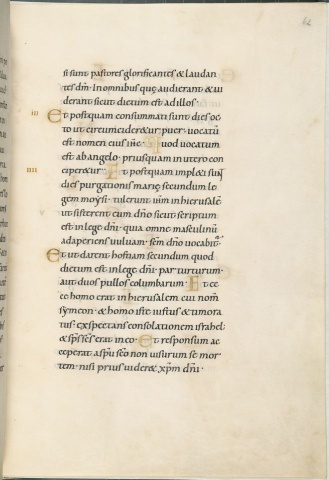 62
si sunt pastores glorificantes & laudan
tes dm̄. In omnibus quę audierant & ui
derant sicut dictum est ad illos.
iii Et postquam consummati sunt dies oc
to ut circumcider&ur puer. uocatū
est nomen eius ihc̄. Quod uocatum
est ab angelo. priusquam in utero con
iiii ciper&ur. Et postquam impl&i sun
dies purgationis marię secundum le
gem moysi. tulerunt illum in hierusalē
v ut sisterent eum dn̄o sicut scriptum
est in lege dn̄i. quia omne masculinū
adaperiens uuluam. scm̄ dn̄o uocabit
Et ut darent hostiam secundum quod
dictum est in lege dn̄i. par turturum
aut duos pullos columbarum. Et ec
ce homo erat in hierusalem cui nom̄
symeon. & homo iste iustus & timora
tus. exspectans consolationem israhel.
& sp̄s sc̄s erat in eo. Et responsum ac
ceperat a sp̄u sc̄o non uisurum se mor
tem. nisi prius uider& xp̄m dn̄i.